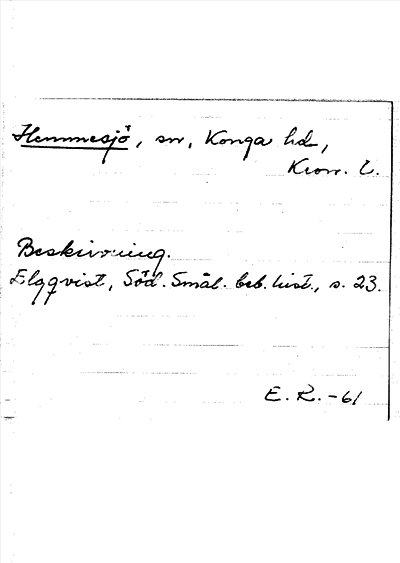 Hemmesjö, sn, Konga hd,
Kron. l.
Beskrivning.
Elgqvist, Söd. Smål. beb. hist., s. 23.
E. R. -61